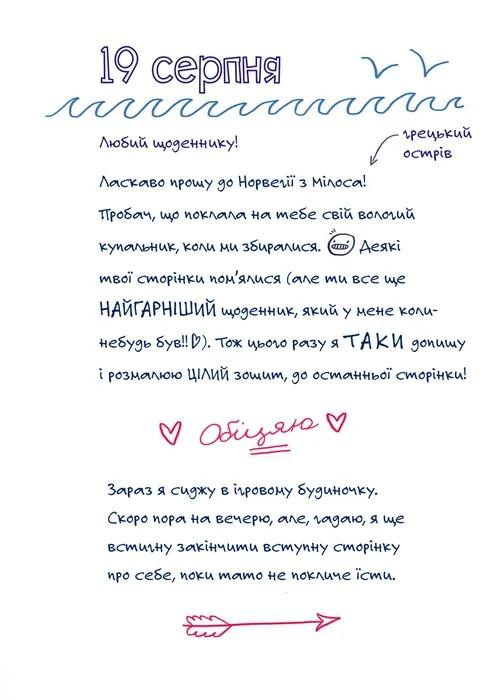 19 серпня
Любий щоденнику!
грецький
острів
Ласкаво прошу до Норвегії з Мілоса!
Пробач, що поклала на тебе свій вологий
купальник, коли ми збиралися. Деякі
твої сторінки пом'ялися (але ти все ще
НАЙГАРНІШИЙ щоденник, який у мене коли-
небудь був!!). Тож цього разу я ТАКИ допишу
і розмалюю ЦІЛИЙ зошит, до останньої сторінки!
Обіцяю
Зараз я сиджу в ігровому будиночку.
Скоро пора на вечерю, але, гадаю, я ще
встигну закінчити вступну сторінку
про себе, поки тато не покличе їсти.